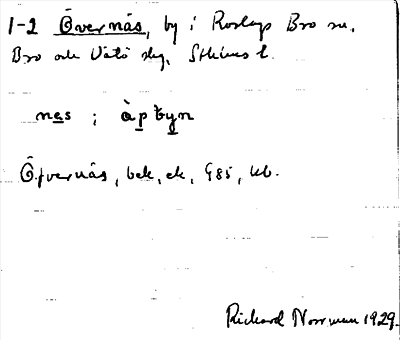 1-2 Övernäs, by i Roslags Bro sn,
Bro och Vätö skg, Sthlms l.
nes ; àpbyn
Öfvernäs, bek, ek, G85, kb.
Richard Norrman 1929.